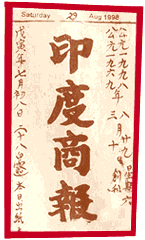 Saturday 29 Aug 1998
公元一九九八年 八月廿九日星期六
公元一九六九 三月十
印度商報
戊寅年七月初八 本日出紙